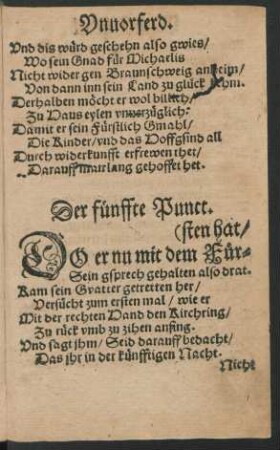 Vnuorferd.
Vnd dis würd geschehn also gwies/
Wo sein Gnad für Michaelis
Nicht wider gen Braunschweig anheim/
Von dann inn sein Land zu glück kehm.
Derhalben möcht er wol billich/
Zu Haus eylen vnuorzüglich:
Damit er sein Fürstlich Gmahl/
Die Kinder/ vnd das Hoffgsind all
Durch widerkunfft erfrewen thet/
Darauff man lang gehoffet het.
Der fünffte Punct.
(sten hat/
DO er nu mit dem Für-
Sein gsprech gehalten also drat.
Kam sein Gvatter getretten her/
Versücht zum ersten mal/ wie er
Mit der rechten Hand den Kirchring/
Zu rück vmb zu zihen anfing.
Vnd sagt jhm/ Seid darauff bedacht/
Das jhr in der künfftigen Nacht.
Nicht